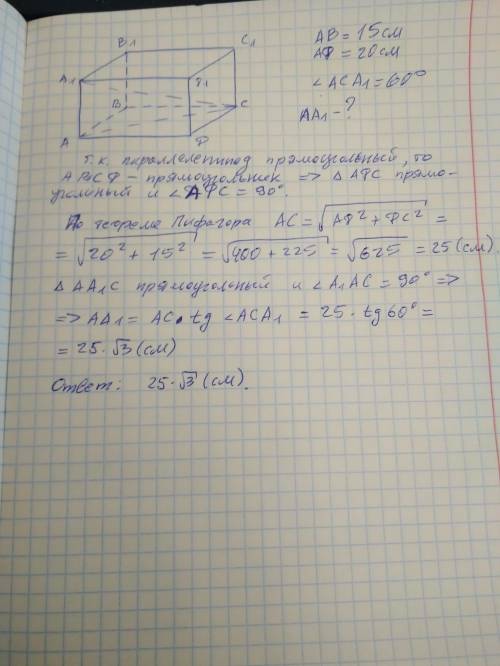 B1
C1
A1
Ф1
B
C
A
Ф
AB = 15см
AФ = 20см
∠ACA1 = 60°
AA1 - ?
Т.к. параллелепипед прямоугольный, то
ABCФ - прямоугольник => ΔAФC прямо-
угольный и ∠AФC = 90°.
По теореме Пифагора AC = √AФ² + ФC² =
= √20² + 15² = √400 + 225 = √625 = 25 (см).
ΔAA1C прямоугольный и ∠A1AC = 90° =>
=> AA1 = AC • tg ∠ACA1 = 25 · tg 60° =
= 25 · √3 (см)
Ответ: 25 · √3 (см).